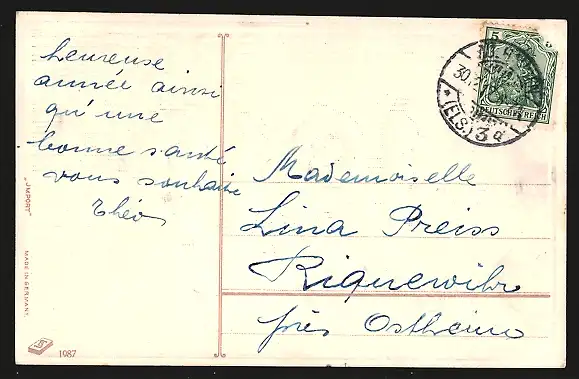 heureuse
année ainsi
qu'une
bonne santé
vous souhaite
Théo
Mademoiselle
Lina Preiss
Riquewihr
près Ostheim
5
DEUTSCHES REICH
30.
* (ELS.) 3 d
"IMPORT"
MADE IN GERMANY.
1087